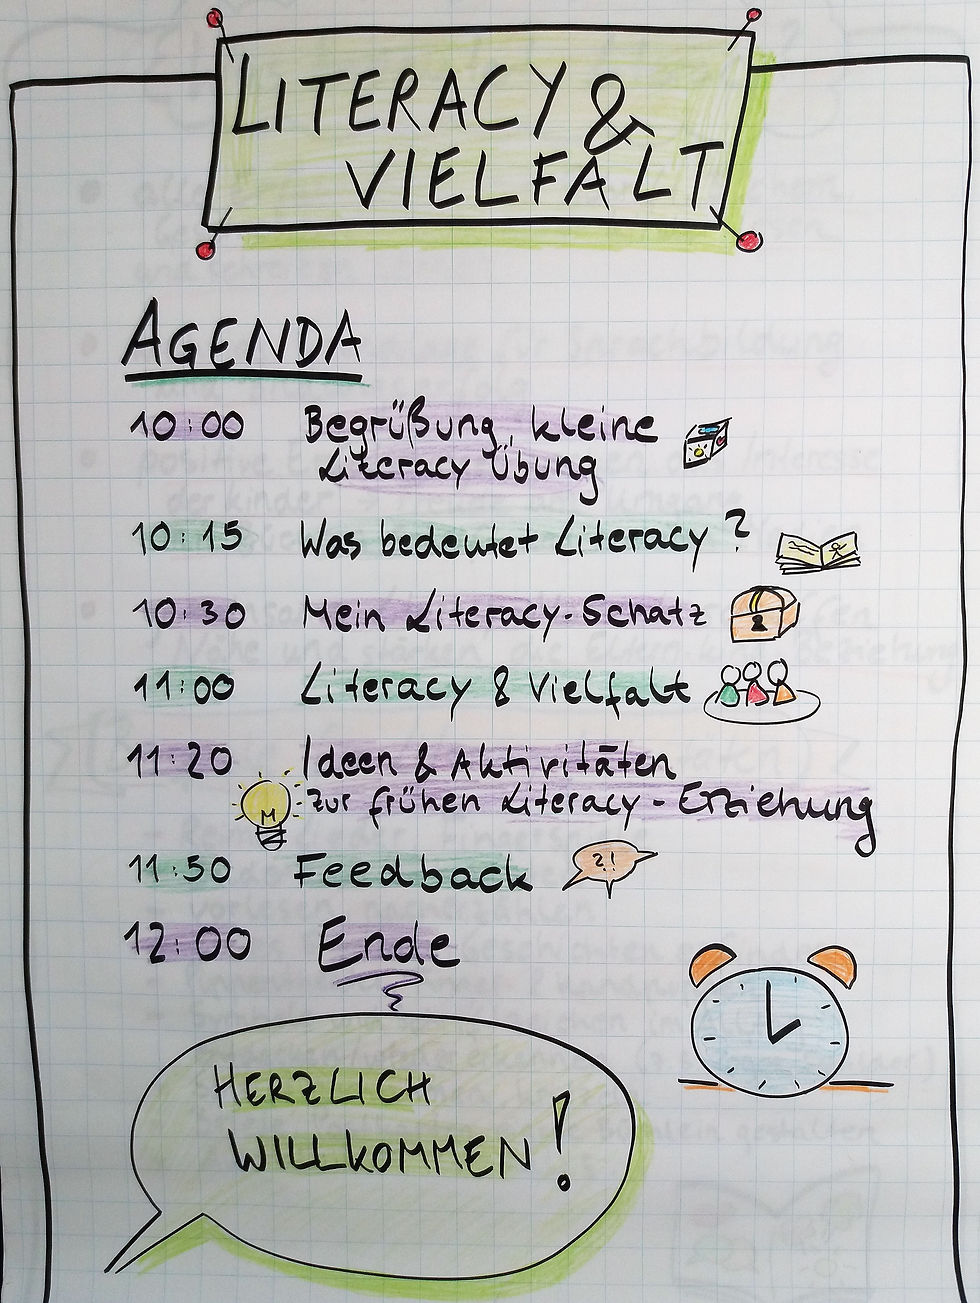 LITERACY &
VIELFALT
AGENDA
10:00 Begrüßung, kleine
Literacy Übung
10:15 Was bedeutet Literacy?
10:30 Mein Literacy-Schatz
11:00 Literacy & Vielfalt
11:20 Ideen & Aktivitäten
zur frühen Literacy-Erziehung
11:50 Feedback ?!
12:00 Ende
HERZLICH
WILLKOMMEN!